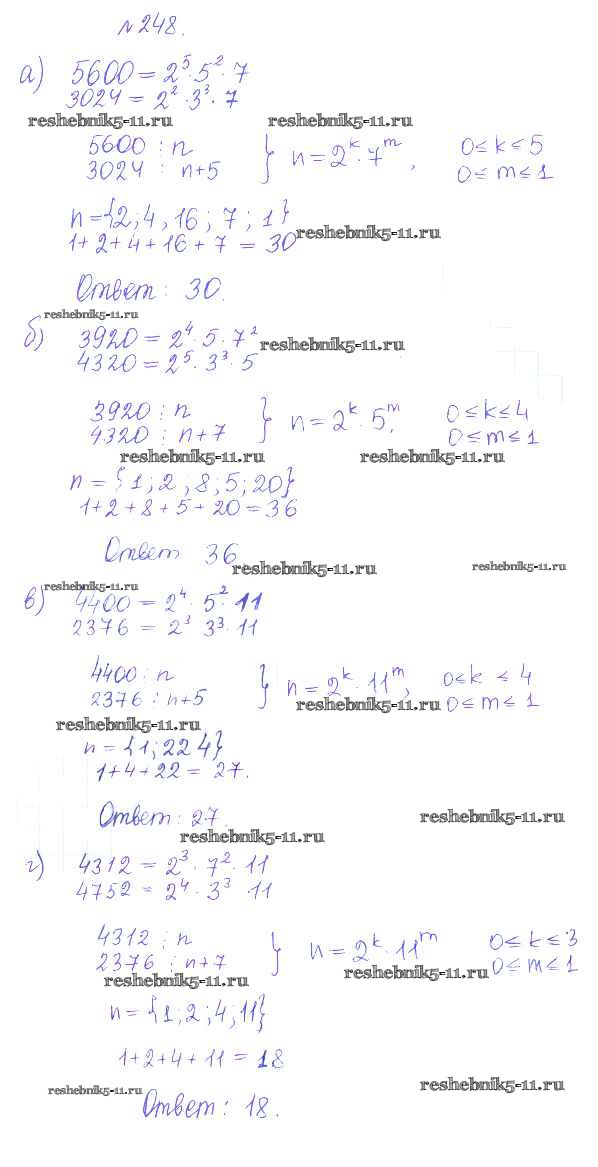 №248.
а) 5600 = 2⁵ · 5² · 7
3024 = 2² · 3³ · 7
reshebnik5-11.ru reshebnik5-11.ru
5600 ⋮ n
3024 ⋮ n+5 } n = 2ᵏ · 7ᵐ, 0 ≤ k ≤ 5
0 ≤ m ≤ 1
n = {2; 4, 16; 7; 1}
1+2+4+16+7 = 30 reshebnik5-11.ru
Ответ: 30.
reshebnik5-11.ru
б) 3920 = 2⁴ · 5 · 7² reshebnik5-11.ru
4320 = 2⁵ · 3³ · 5
3920 ⋮ n
4320 ⋮ n+7 } n = 2ᵏ · 5ᵐ, 0 ≤ k ≤ 4
0 ≤ m ≤ 1
reshebnik5-11.ru reshebnik5-11.ru
n = {1; 2, 8; 5; 20}
1+2+8+5+20 = 36
Ответ 36
reshebnik5-11.ru reshebnik5-11.ru
reshebnik5-11.ru
в) 4400 = 2⁴ · 5² · 11
2376 = 2³ 3³ · 11
4400 ⋮ n
2376 ⋮ n+5 } n = 2ᵏ · 11ᵐ, 0 ≤ k ≤ 4
0 ≤ m ≤ 1
reshebnik5-11.ru
reshebnik5-11.ru
n = {1; 22 4}
1+4+22 = 27.
Ответ: 27.
reshebnik5-11.ru
reshebnik5-11.ru
г) 4312 = 2³ · 7² · 11
4752 = 2⁴ · 3³ 11
4312 ⋮ n
2376 ⋮ n+7 } n = 2ᵏ · 11ᵐ 0 ≤ k ≤ 3
0 ≤ m ≤ 1
reshebnik5-11.ru
reshebnik5-11.ru
n = {1; 2; 4; 11}
1+2+4+11 = 18
reshebnik5-11.ru reshebnik5-11.ru
Ответ: 18.